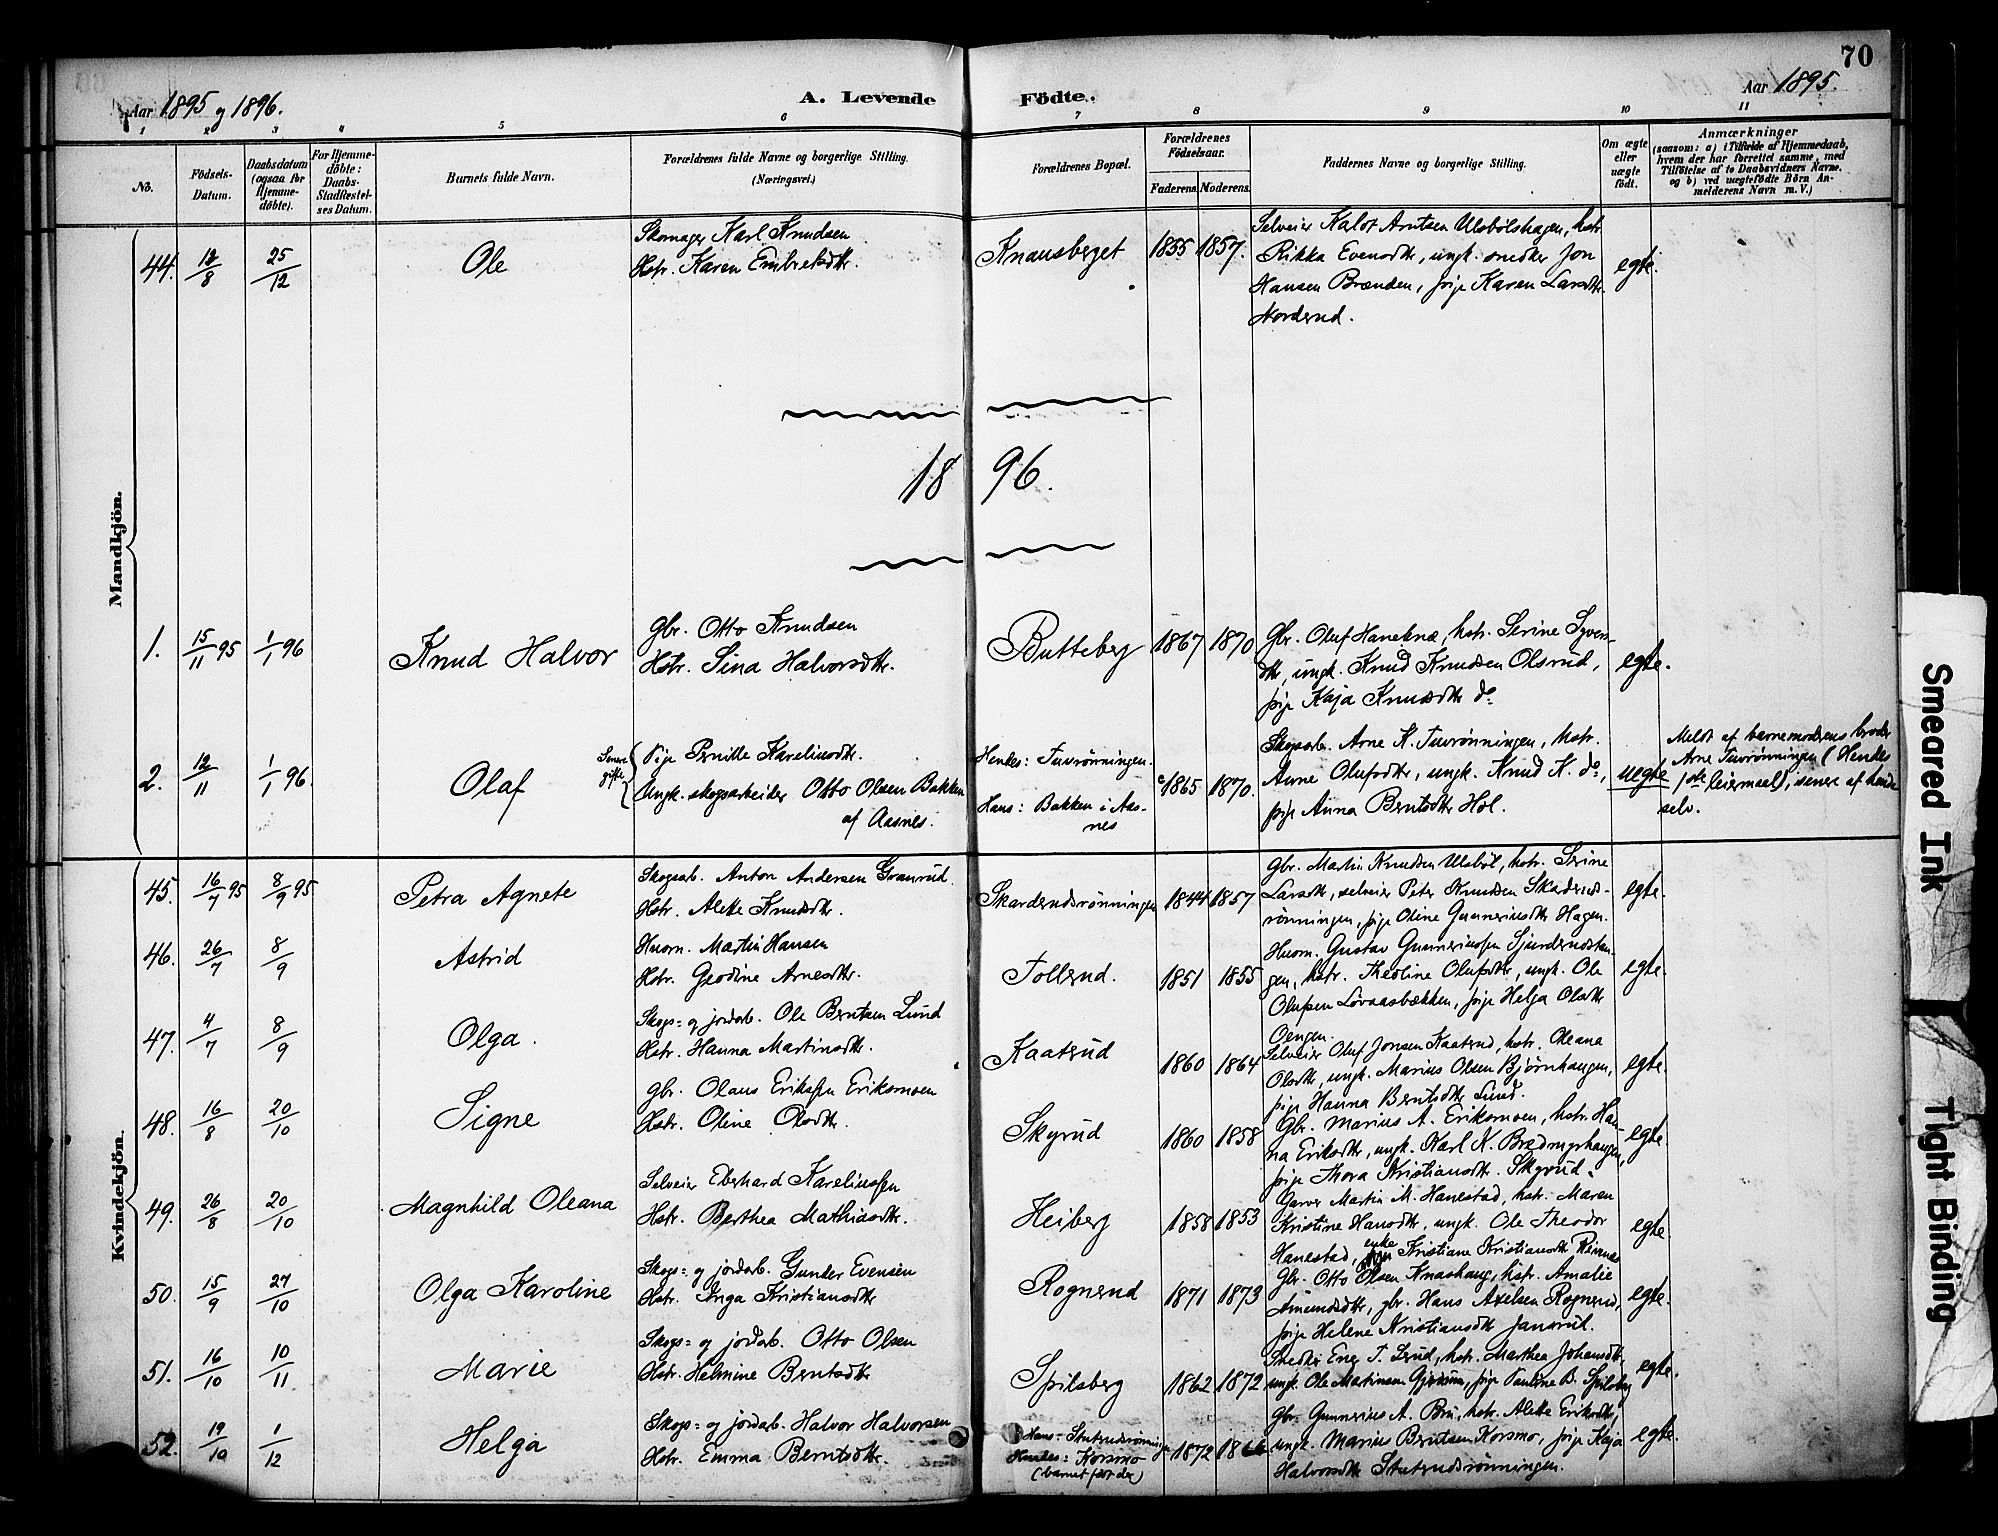 70
Aar 1895 og 1896.
A. Levende
Födte.
Aar 1895.
1 2 3 4 5 6 7 8 9 10 11
No.
Fødsels-
Datum.
Daabsdatum
(ogsaa for
Hjemme-
døbte).
For Hjemme-
døbte:
Daabs-
Stadfæstel-
ses Datum.
Barnets fulde Navn.
Forældrenes fulde Navne og borgerlige Stilling.
(Næringsvei.)
Forældrenes Bopæl.
Forældrenes
Fødselsaar.
Faderens. Moderens.
Faddernes Navne og borgerlige Stilling.
Om ægte
eller
uægte
født.
Anmærkninger
(saasom: a) i Tilfælde af Hjemmedaab,
hvem der har forrettet samme, med
Tilføielse af to Daabsvidners Navne.
og b) ved uægtefødte Börn An-
melderens Navn m. V.)
Mandkjön.
44. 12/8 25/12
Ole
Skomager Karl Knudsen
Hstr. Karen Embretsdtr.
Knausberget
1855 1857.
Selveier Kalot Arntsen Ulsbølshagen, hstr.
Rikka Evensdtr, ungk. snedker Jon
Hansen Brænden, pige Karen Larsdtr.
Norderud.
egte.
18 96.
1. 15/11 95 1/1 96
Knud Halvor
Gbr. Otto Knudsen
Hstr. Sina Halvorsdtr.
Butteberg
1867 1870
Gbr. Oluf Haneknæ, hstr. Serine Syvers-
dtr, ungk. Knud Knudsen Olsrud,
pige Kaja Knudsdtr do
egte.
2. 12/11 1/1 96
Olaf
Senere
gifte
Pige Pernille Kareliusdtr.
Ungk. skogsarbeider Otto Olsen Bakken
af Aasnes.
Hendes: Tuvrønningen.
Hans: Bakken i Aas-
nes
1865 1870.
Skogsarb. Arne K. Tuvrønningen, hstr.
Anne Olufsdtr, ungk. Knud K. do,
pige Anna Berntsdtr Hol.
uegte
Meldt af barnemoderens broder
Arne Tuvrønningen (Hendes
1ste leiermaal), senere af hende
selv.
Kvindekjön.
45. 16/7 95 8/9 95
Petra Agnete
Skogsarb. Anton Andersen Granrud.
Hstr. Alette Knudsdtr.
Skarderudsrønningen
1844 1857
Gbr. Martin Knudsen Ulsbøl, hstr. Serine
Larsdtr, selveier Peter Knudsen Skaderuds-
rønningen, pige Oline Gunneriusdtr Hagen.
egte.
46. 26/7 8/9
Astrid
Husm. Martin Hansen
Hstr. Geodine Arnesdtr.
Tollerud.
1851 1855
Husm. Gustav Gunneriussen Sjurderudstan-
gen, hstr. Theoline Olufsdtr, ungk. Ole
Olufsen Løvaasbækken, pige Helga Olsdtr
Oengen.
egte.
47. 4/7 8/9
Olga.
Skogs= og jordarb. Ole Berntsen Lund
Hstr. Hanna Martinsdtr.
Kaatrud
1860 1864
Selveier Oluf Jonsen Kaatrud, hstr. Oleana
Olsdtr, ungk. Marius Olsen Bjørnhaugen,
pige Hanna Berntsdtr Lund.
egte.
48. 16/8 20/10
Signe
Gbr. Olaus Eriksen Eriksmoen
Hstr. Oline Olsdtr.
Skyrud
1860 1858
Gbr. Marius A. Eriksmoen, hstr. Han-
na Eriksdtr, ungk. Karl K. Brødmyrhaugen,
pige Thora Kristiansdtr. Skyrud.
egte.
49. 26/8 20/10
Magnhild Oleana
Selveier Eberhard Kareliussen
Hstr. Berthea Mathiasdtr.
Heiberg
1858 1853
Garver Martin M. Hanestad, hstr. Maren
Kristine Hansdtr, ungk. Ole Theodor
Hanestad, enke Kristiane Kristiansdtr Revenæs
egte.
50. 15/9 27/10
Olga Karoline
Skogs= og jordarb. Gunder Evensen
Hstr. Inga Kristiansdtr
Rognerud
1871 1873
Gbr. Otto Olsen Knashaug, hstr. Amalie
Amundsdtr, gbr. Hans Axelsen Rognerud,
pige Helene Kristiansdtr Jansrud.
egte.
51. 16/10 10/11
Marie
Skogs= og jordarb. Otto Olsen
Hstr. Helmine Berntsdtr
Spilsberg
1862 1872
Snedker Ener T. Lerud, hstr. Marthea Johansdtr,
ungk. Ole Martinsen Gjersum, pige Pauline B. Spilsberg
egte.
52. 19/10 1/12
Helga
Skogs= og jordarb. Halvor Halvorsen
Hstr. Emma Berntsdtr.
Hans: Stutrudsrønningen
Hendes: Korsmo
(barnet født der)
1872 1866
Gbr. Gunnerius A. Bru, hstr. Alette Eriksdtr,
ungk. Marius Berntsen Korsmo, pige Kaja
Halvorsdtr Stutrudsrønningen.
egte.
Smeared Ink
Tight Binding